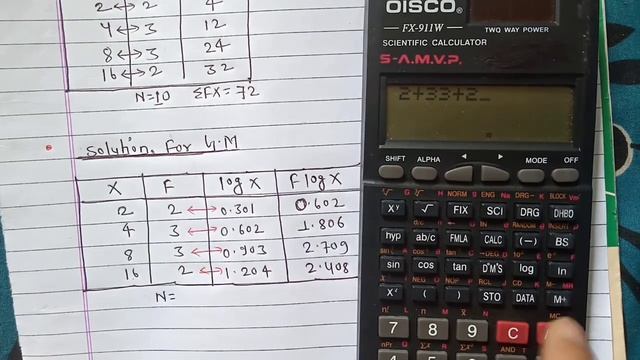 2 ↔ 2 4
4 ↔ 3 12
8 ↔ 3 24
16 ↔ 2 32
N=10 ΣFX=72
Solution, For G.M
X F logX F logX
2 2 ↔ 0.301 0.602
4 3 ↔ 0.602 1.806
8 3 ↔ 0.903 2.709
16 2 ↔ 1.204 2.408
N=
OISCO
FX-911W TWO WAY POWER
SCIENTIFIC CALCULATOR
S-A.M.V.P.
2+33+2_
SHIFT ALPHA MODE OFF
FIX SCI DRG DHBO
hyp ab/c FMLA CALC (−) BS
sin cos tan D°M'S log ln
( ) STO DATA M+
7 8 9 C